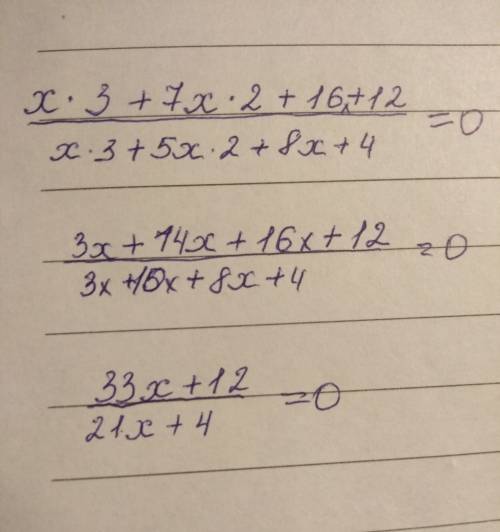 x · 3 + 7x · 2 + 16x + 12
x · 3 + 5x · 2 + 8x + 4 = 0
3x + 14x + 16x + 12
3x + 10x + 8x + 4 = 0
33x + 12
21x + 4 = 0